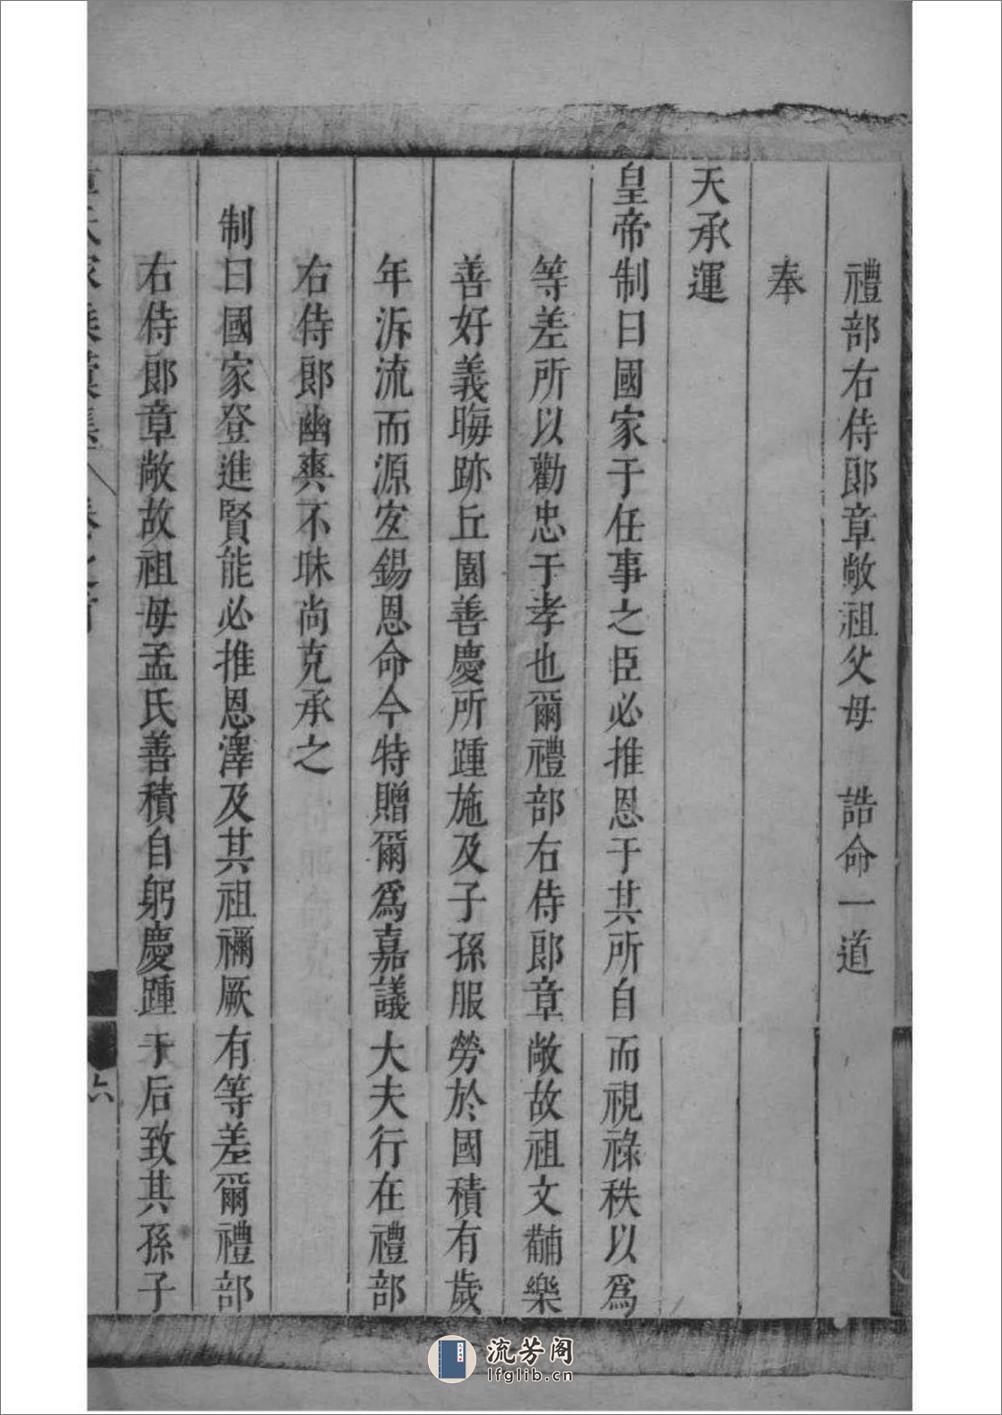 禮部右侍郎章敞祖父母 誥命一道
奉
天承運
皇帝制曰國家于任事之臣必推恩于其所自而視祿秩以爲
等差所以勸忠于孝也爾禮部右侍郎章敞故祖文黼樂
善好義晦跡丘園善慶所踵施及子孫服勞於國積有歲
年泝流而源宐錫恩命今特贈爾爲嘉議大夫行在禮部
右侍郎幽爽不昧尚克承之
制曰國家登進賢能必推恩澤及其祖禰厥有等差爾禮部
右侍郎章敞故祖母孟氏善積自躬慶踵于后致其孫子
六
流芳阁
lfglib.cn